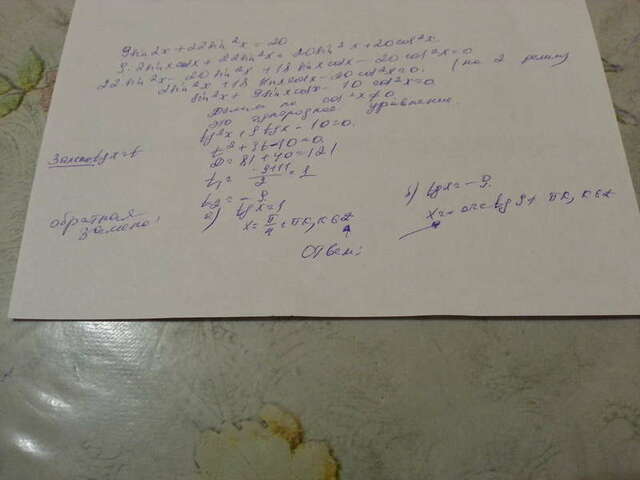 9sin2x+22sin²x=20
9·2sinxcosx+22sin²x=20sin²x+20cos²x
22sin²x-20sin²x+18sinxcosx-20cos²x=0
2sin²x+18sinxcosx-20cos²x=0. (на 2 делим)
sin²x+9sinxcosx-10cos²x=0
Делим на cos²x≠0
это однородное уравнение.
tg²x+9tgx-10=0.
Замена tgx=t t²+9t-10=0.
D=81+40=121
t₁=-9+11/2=1
t₂=-9.
обратная замена: а) tgx=1 б) tgx=-9.
x=π/4+πk, k∈Z x=-arctg9+πk, k∈Z
Ответ: